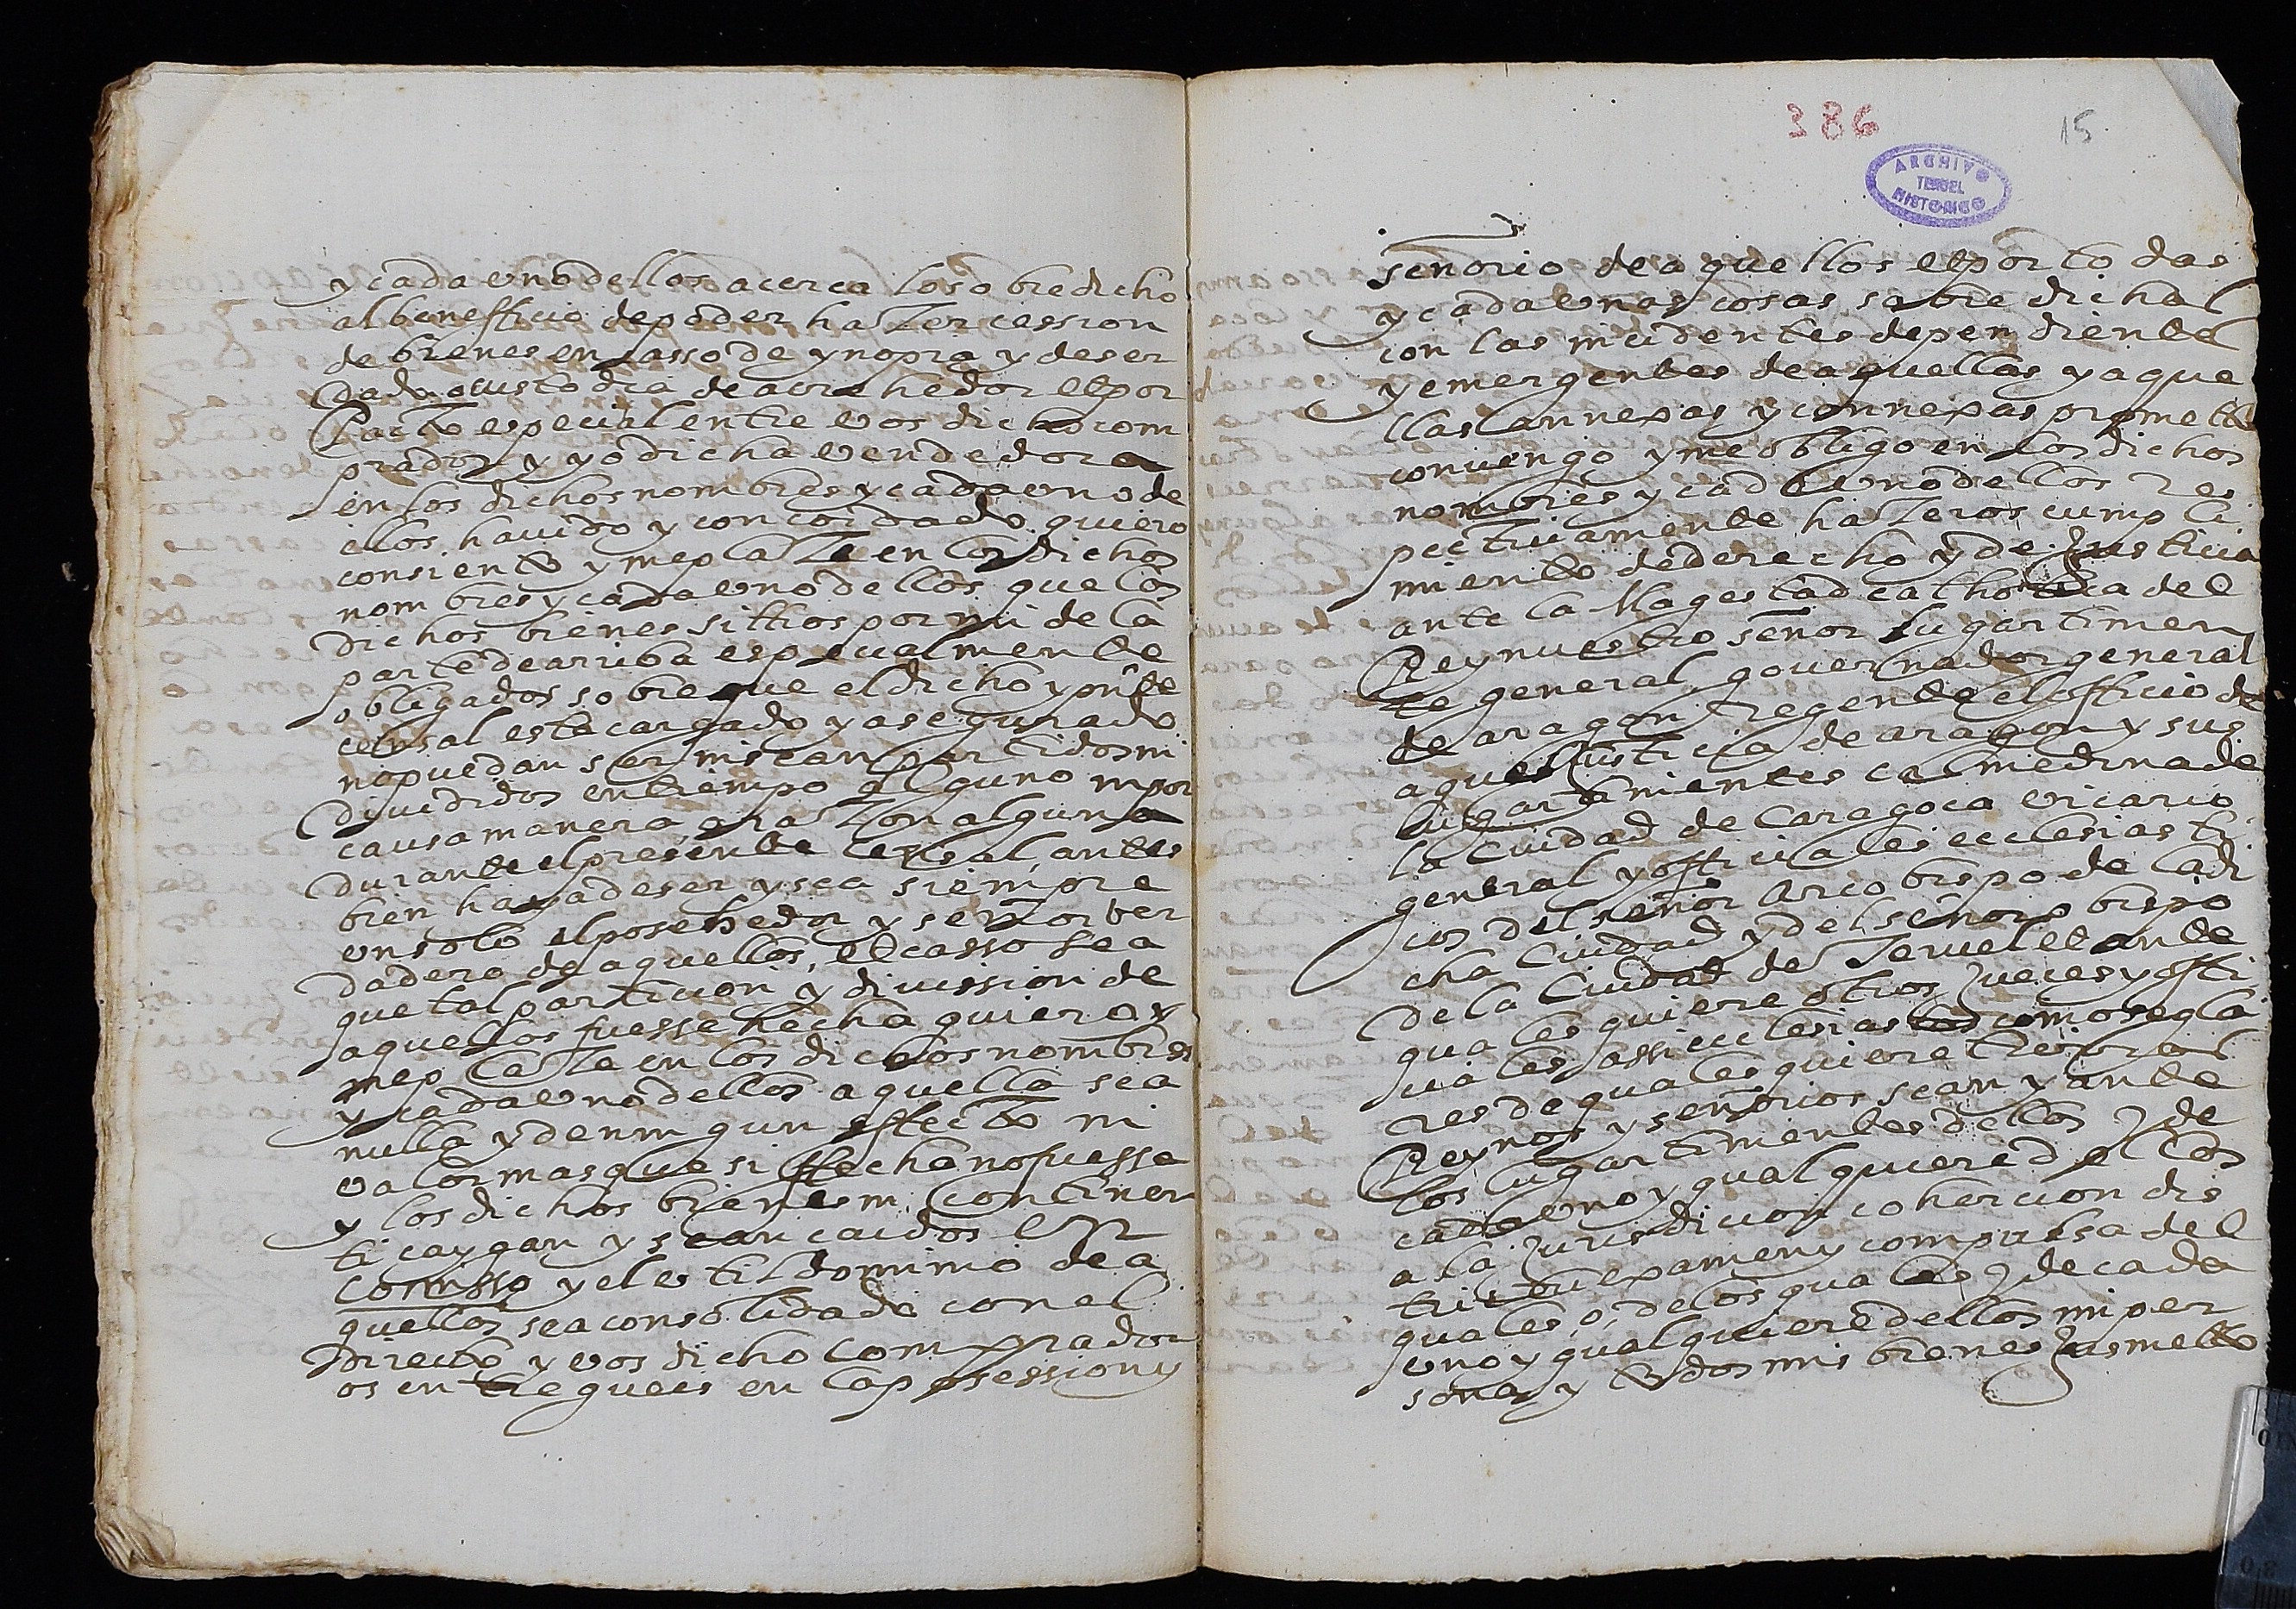 y cada uno dellos acerca lo sobredicho
al benefficio de poder hazer cession
de bienes en casso de ynopia y de ser
dado a custodia de acrehedor et por
Pacto especial entre vos dicho com
prador y yo dicha vendedora
en los dichos nombres y cada uno de
ellos havido y concordado quiero
consiento y me plaze en los dichos
nombres y cada uno dellos que los
dichos bienes sittios por mi de la
parte de arriba especialmente
obligados sobre que el dicho y pnte
censal esta cargado y asegurado
no puedan ser ni sean partidos ni
divididos en tiempo alguno ni por
causa manera o razon alguna
durante el presente censal, antes
bien haya de ser y sea siempre
un solo el posehedor y señor ver
dadero de aquellos, et casso sea
que tal particion y division de
aquellos fuesse hecha quiero y
me plaze en los dichos nombres
y cada uno dellos aquella sea
nulla y de ningun effecto ni
valor mas que si ffecha no fuesse
y los dichos bienes in continen
ti caygan y sean caidos en
comisso y el util dominio de a
quellos sea consolidado con el
directo y vos dicho comprador
os entregueis en la possession y
386
15
ARCHIVO
TERUEL
HISTORICO
señorio de aquellos et por todas
y cada unas cosas sobre dichas
con las incidentes dependientes
y emergentes de aquellas y a que
llas annexas y connexas prometto
convengo y me obligo en los dichos
nombres y cada uno dellos res
pectivamente hazeros cumpli
miento de derecho y de Justicia
ante la Magestad catholica del
Rey nuestro señor lugartinien
te general, governador general
de aragon regente el officio de
aquel Justicia de aragon y sus
lugartinientes calmedina de
la Ciudad de Caragoca vicario
general y officiales ecclesiasti
cos del señor Arcobispo de la di
cha Ciudad y del señor obispo
de la Ciudad de Teruel et ante
quales quiere otros Jueces y offi
ciales assi ecclesiasticos como segla
res de quales quiere tierras
Reynos y señorios sean y ante
los lugartinientes dellos y de
cada uno y qualquiere dellos
a la Jurisdicion cohercion dis
trictu examen y compulsa del
quales, o, de los quales y de cada
uno y qualquiere dellos mi per
sona y todos mis bienes Jusmetto